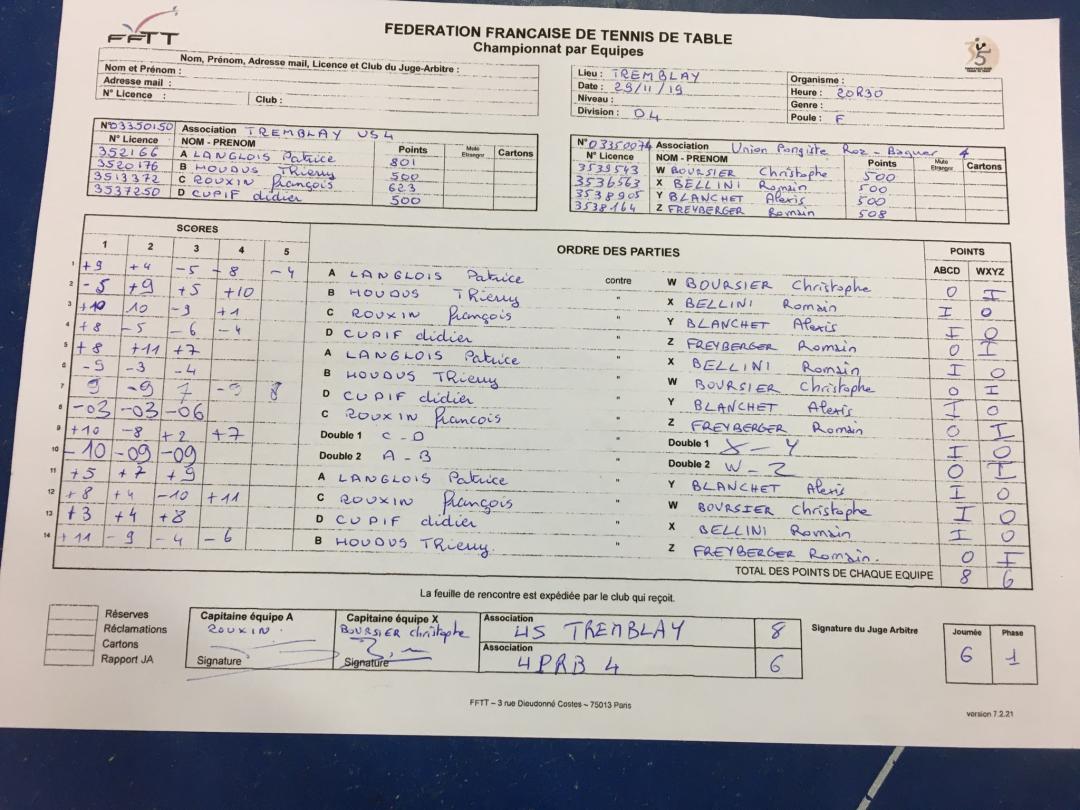 FFTT
FEDERATION FRANCAISE DE TENNIS DE TABLE
Championnat par Equipes
Nom, Prénom, Adresse mail, Licence et Club du Juge-Arbitre :
Nom et Prénom :
Adresse mail :
N° Licence : Club :
Lieu : TREMBLAY Organisme :
Date : 29/11/19 Heure : 20H30
Niveau : Genre :
Division : D4 Poule : F
N°03350150 Association TREMBLAY US 4
N° Licence NOM - PRENOM Points Muté Etranger Cartons
352166 A LANGLOIS Patrice 801
3520176 B HOUDUS Thierry 500
3513372 C ROUXIN François 623
3537250 D CUPIF didier 500
N°03350074 Association Union Pongiste Roz - Baguer 4
N° Licence NOM - PRENOM Points Muté Etranger Cartons
3539543 W BOURSIER Christophe 500
3536563 X BELLINI Romain 500
3538905 Y BLANCHET Alexis 500
3538164 Z FREYBERGER Romain 508
SCORES ORDRE DES PARTIES POINTS
1 2 3 4 5 ABCD WXYZ
1 +9 +4 -5 -8 -4 A LANGLOIS Patrice contre W BOURSIER Christophe O I
2 -5 +9 +5 +10 B HOUDUS Thierry " X BELLINI Romain I O
3 +10 10 -9 +1 C ROUXIN François " Y BLANCHET Alexis I O
4 +8 -5 -6 -4 D CUPIF didier " Z FREYBERGER Romain O I
5 +8 +11 +7 A LANGLOIS Patrice " X BELLINI Romain I O
6 -9 -3 -4 B HOUDUS Thierry " W BOURSIER Christophe O I
7 9 -9 7 -9 8 D CUPIF didier " Y BLANCHET Alexis I O
8 -03 -03 -06 C ROUXIN François " Z FREYBERGER Romain O I
9 +10 -8 +2 +7 Double 1 C - D " Double 1 X - Y I O
10 -10 -09 -09 Double 2 A - B " Double 2 W - Z O I
11 +5 +7 +9 A LANGLOIS Patrice " Y BLANCHET Alexis I O
12 +8 +4 -10 +11 C ROUXIN François " W BOURSIER Christophe I O
13 +3 +4 +8 D CUPIF didier " X BELLINI Romain I O
14 +11 -9 -4 -6 B HOUDUS Thierry. " Z FREYBERGER Romain. O I
TOTAL DES POINTS DE CHAQUE EQUIPE 8 6
La feuille de rencontre est expédiée par le club qui reçoit.
Réserves
Réclamations
Cartons
Rapport JA
Capitaine équipe A
ROUXIN
Signature
Capitaine équipe X
BOURSIER Christophe
Signature
Association US TREMBLAY 8
Association UPRB 4 6
Signature du Juge Arbitre
Journée Phase
6 1
FFTT – 3 rue Dieudonné Costes ~ 75013 Paris
version 7.2.21